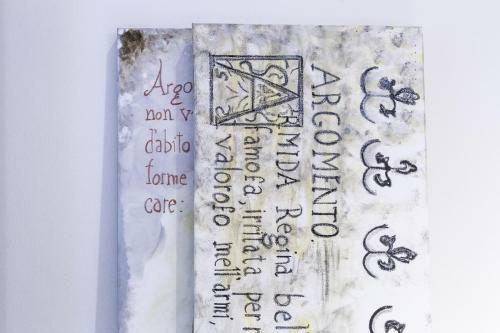 Argo
non v
d'abito
forme
care:
ARGOMENTO.
ARMIDA Regina bel
famofa, irritata per
valorofo nell'armi,